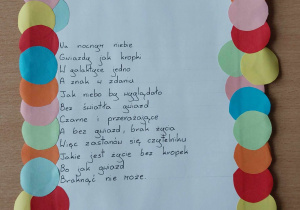 Na nocnym niebie
Gwiazdy jak kropki
W galaktyce jedno
A znak w zdaniu.
Jak niebo by wyglądało
Bez światła gwiazd
Czarne i przerażające
A bez gwiazd, brak życia
Więc zastanów się czytelniku
Jakie jest życie bez kropek
Bo jak gwiazd
Braknąć nie może.